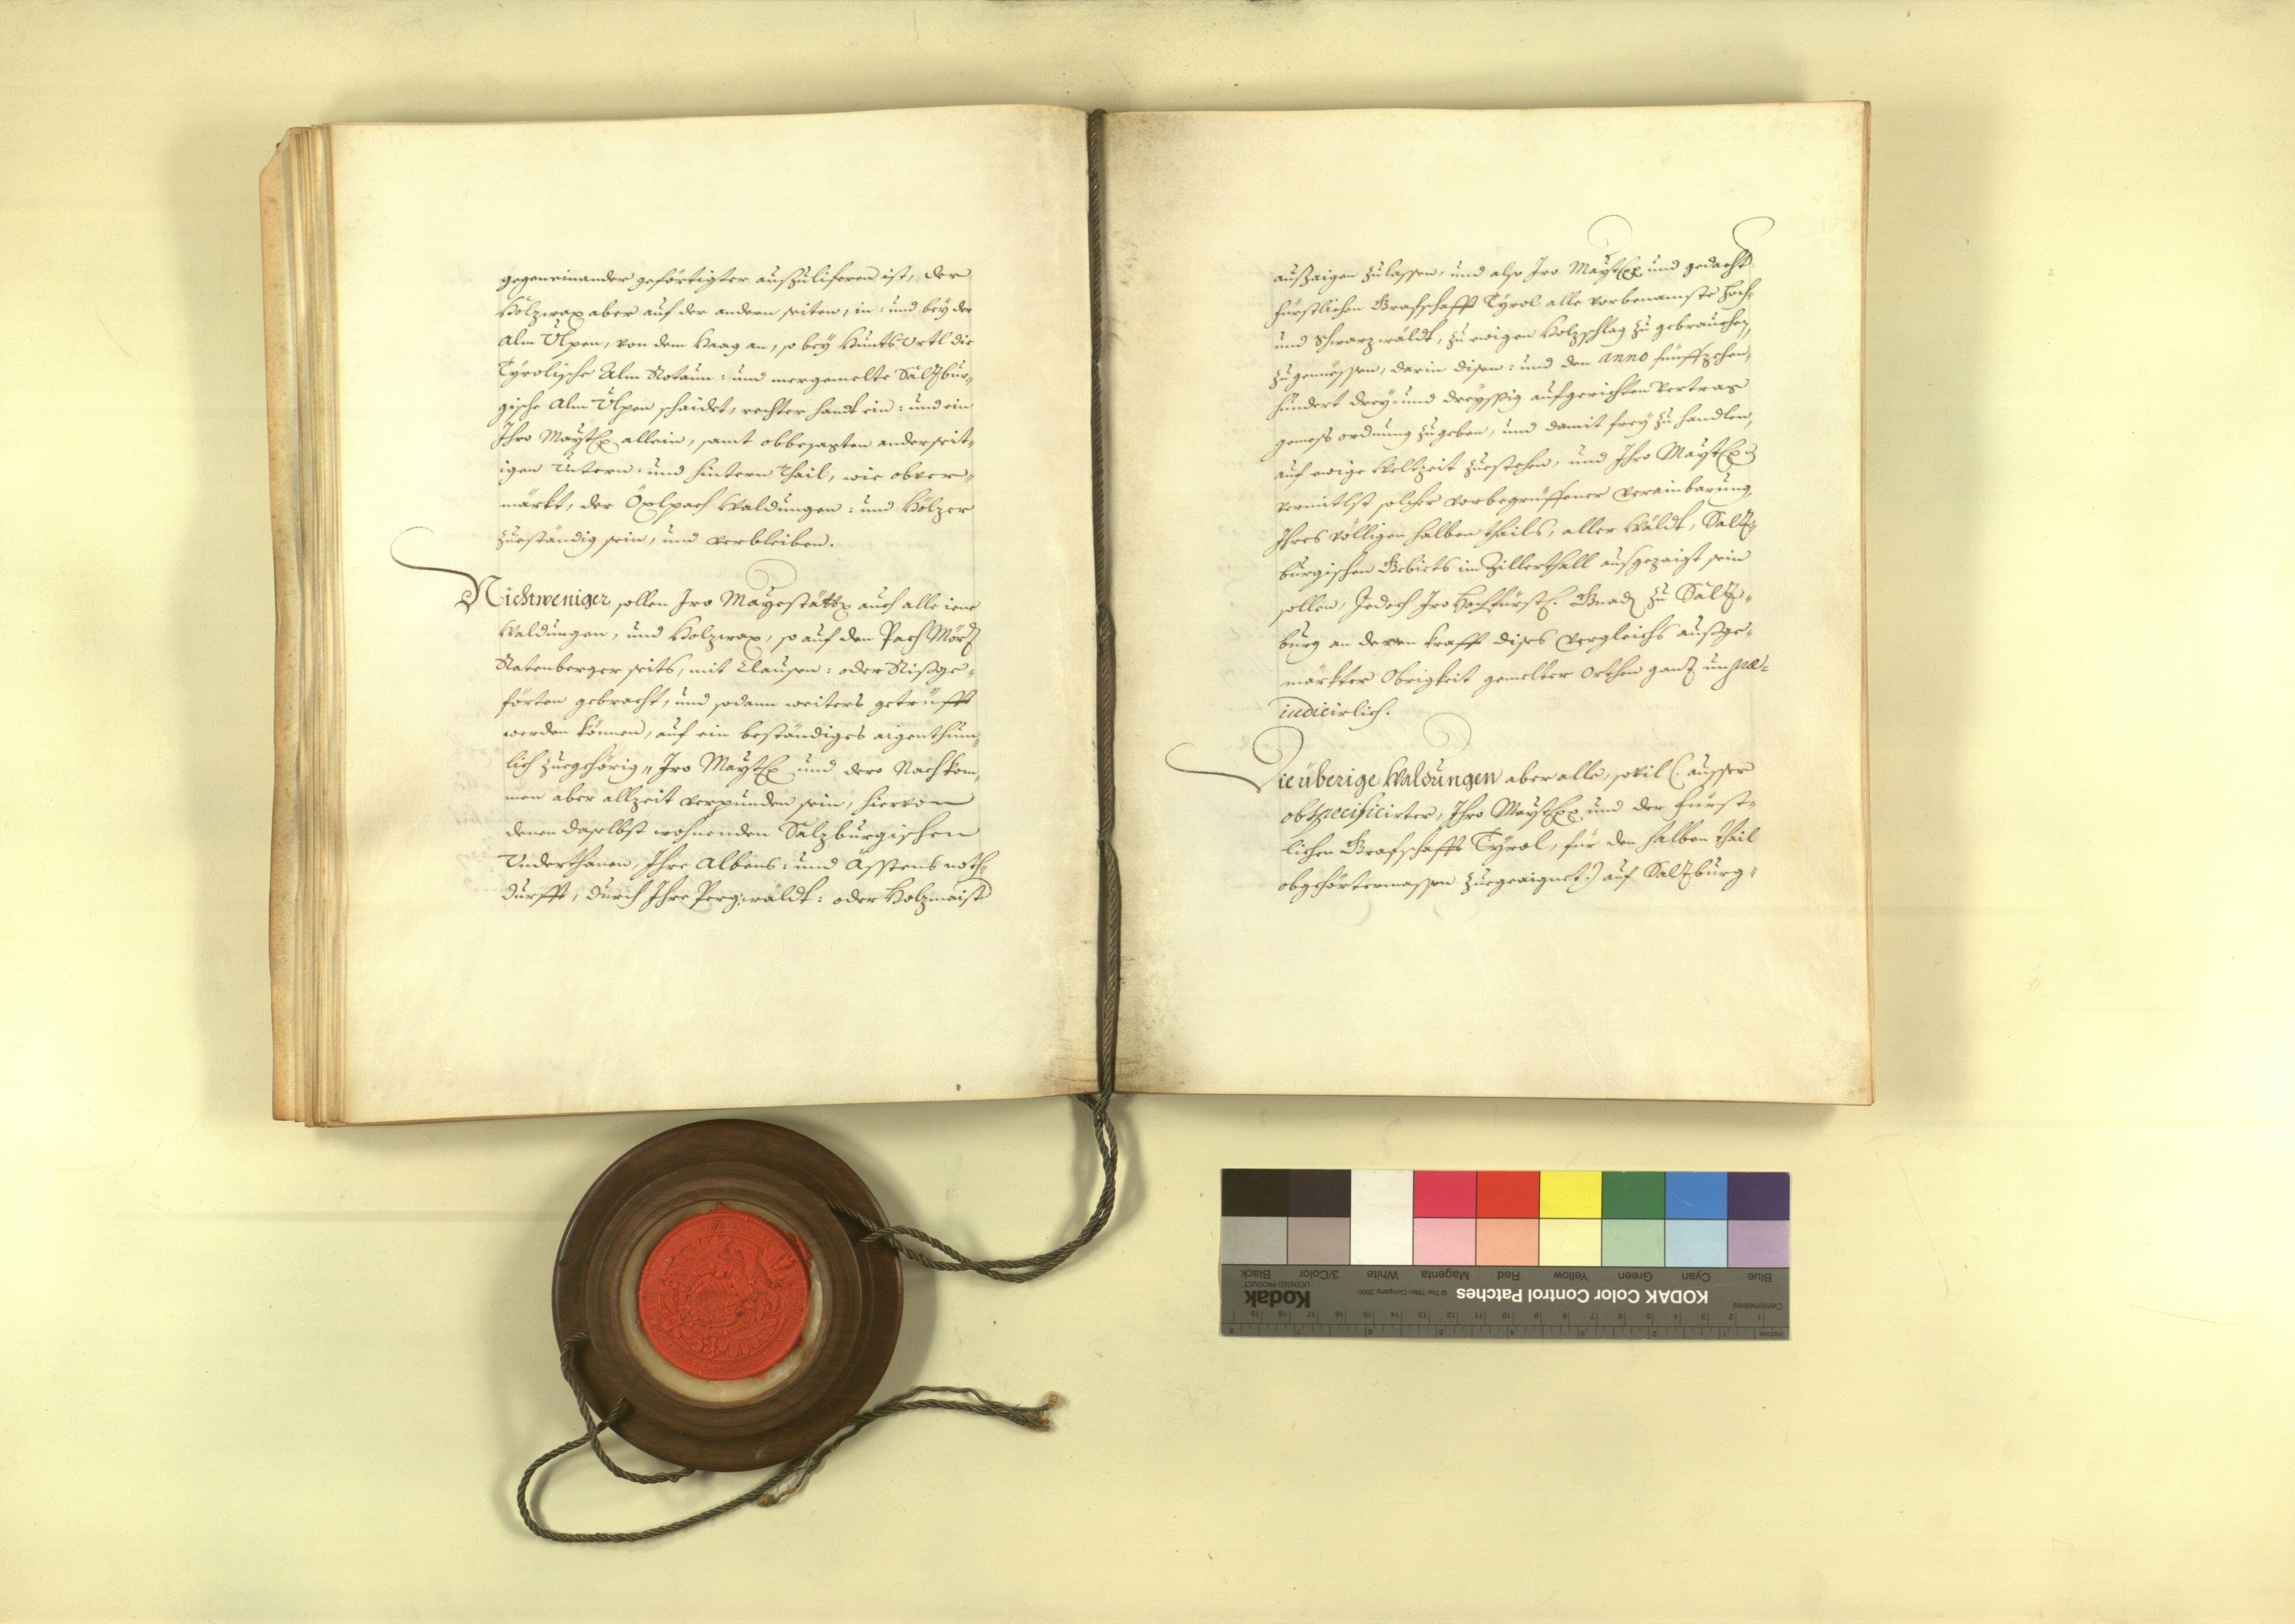 gegeneinander geförtigter auszuliferen ist, der
Holzwax aber auf der andern seiten, in: und bey der
Alm Ulpen, von dem Haag an, so bey Hunts Örtl die
Tyrolische Alm Rotaun: und mergemelte Saltzbur„
gische Alm Ulpen schaidet, rechter handt ein: und ein
Ihro Mayst allein, samt obbesagten anderseit„
igen Untern: und hintern thail, wie obver„
märkt, der Öxlpach Waldungen: und Hölzer
zueständig sein, und verbleiben.
Nichtweniger sollen Iro Mayestätt auch alle iene
Waldungen, und Holzwax, so auf den Pach Mörz
Ratenberger seits, mit Clausen: oder Rißge„
förten gebracht, und sodann weiters getrüfft
werden können, auf ein beständiges aigenthum„
lich zuegehörig„ Iro Mayst und dero Nachkom„
men aber allzeit verpunden sein, hiervon
denen daselbst wohnenden Salzburgischen
Underthanen, Ihre Albens: und Ässtens noth„
durfft, durch Ihre Pergwäldt: oder Holzmaist
außzaigen zulassen, und also Iro Mayst und gedacht
fürstlichen Grafschafft Tyrol alle vorbenamste Hoch„
und Schwarzwäldt, zu ewigen Holzschlag zu gebrauchen,
zugenüessen, darin disen: und den anno fünffzehen„
hundert drey: und dreyssig aufgerichten Vertrag
gemess ordnung zugeben, und damit frey zu handlen,
auf ewige Weltzeit zuestehen, und Ihro Mayst
vermitlst solcher vorbegrüffener verainbarung,
Ihres völligen halben thails, aller Wäldt, Saltz„
burgischen Gebiets im Zillerthall ausgezaigt sein
sollen, Jedoch Iro Hochfürstl. Gnad zu Saltz„
burg an deren krafft dises Vergleichs außge„
märkter Obrigkeit gemelter Orthen gantz unpræ„
iudicirlich.
Die überige Waldungen aber alle, sovil (: ausser
obspecificirter, Ihro Mayst und der Fürst„
lichen Grafschafft Tyrol, für den halben thail
obgehörtermassen zuegeaignet :) auf Saltzburg„
Blue
Cyan
Green
Yellow
Red
Magenta
White
3/Color
Black
KODAK Color Control Patches
© The Tiffen Company, 2000
Kodak
LICENSED PRODUCT
Centimetres
1 2 3 4 5 6 7 8 9 10 11 12 13 14 15 16 17 18 19
Inches
1 2 3 4 5 6 7 8